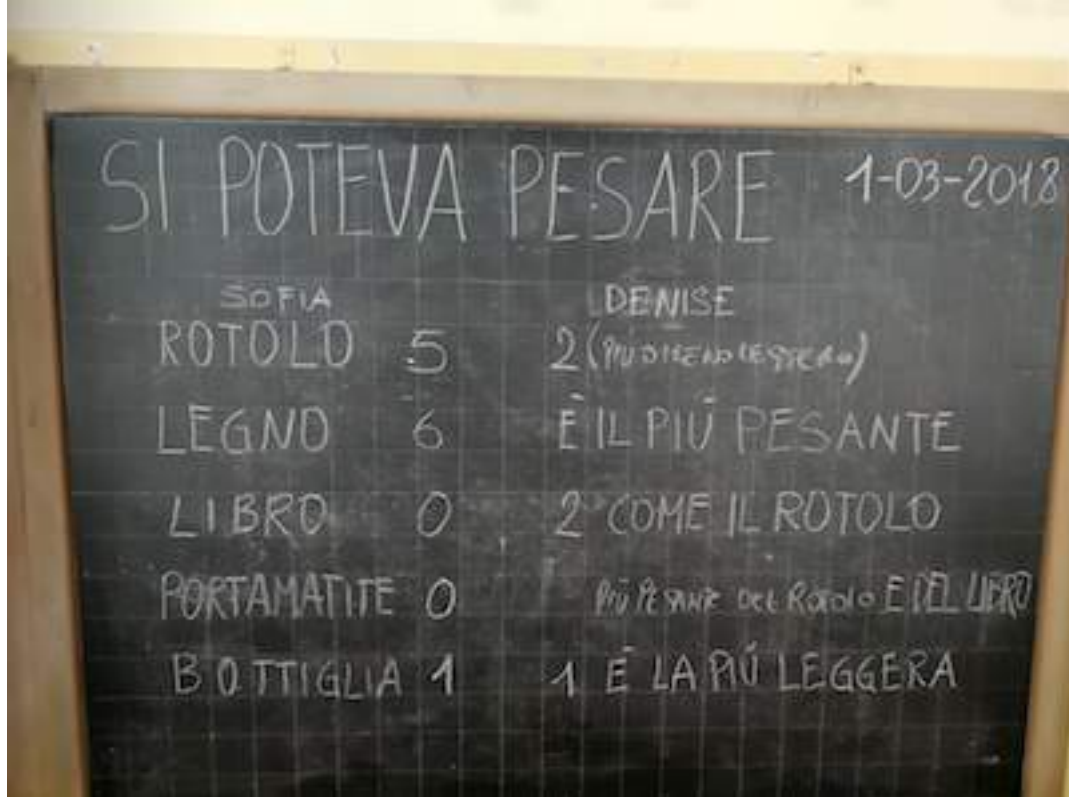 SI POTEVA PESARE 1-03-2018
SOFIA DENISE
ROTOLO 5 2 (PIÙ O MENO LEGGERO)
LEGNO 6 È IL PIÚ PESANTE
LIBRO 0 2 COME IL ROTOLO
PORTAMATITE 0 PIÙ PESANTE DEL ROTOLO E DEL LIBRO
BOTTIGLIA 1 1 È LA PIÚ LEGGERA